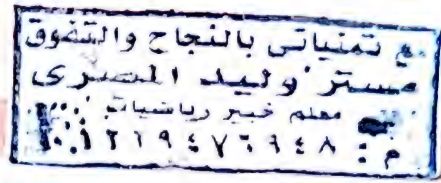 مع تمنياتى بالنجاح والتفوق
مستر / وليد المصرى
معلم خبير رياضيات
م :